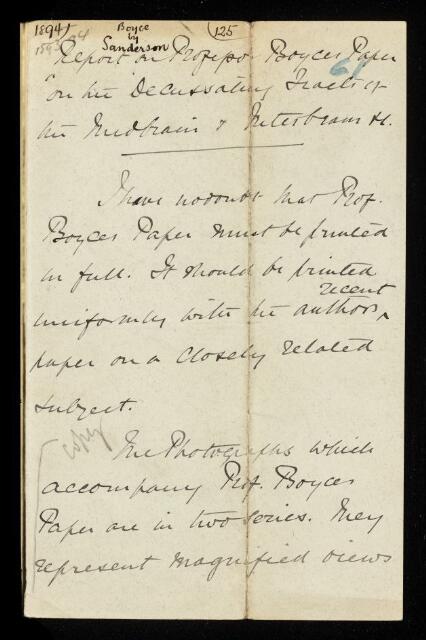 1894
Boyce
by
Sanderson
125
1893-94
61
Report on Professor Boyces Paper
"on the Decussating Tracts of
the Midbrain & Interbrain &c.
I have no doubt that Prof.
Boyces Paper must be printed
in full. It should be printed
uniformly with the authors ‸ recent
paper on a closely related
subject.
copy
The Photographs which
accompany Prof. Boyces
Paper are in two series. They
represent magnified views